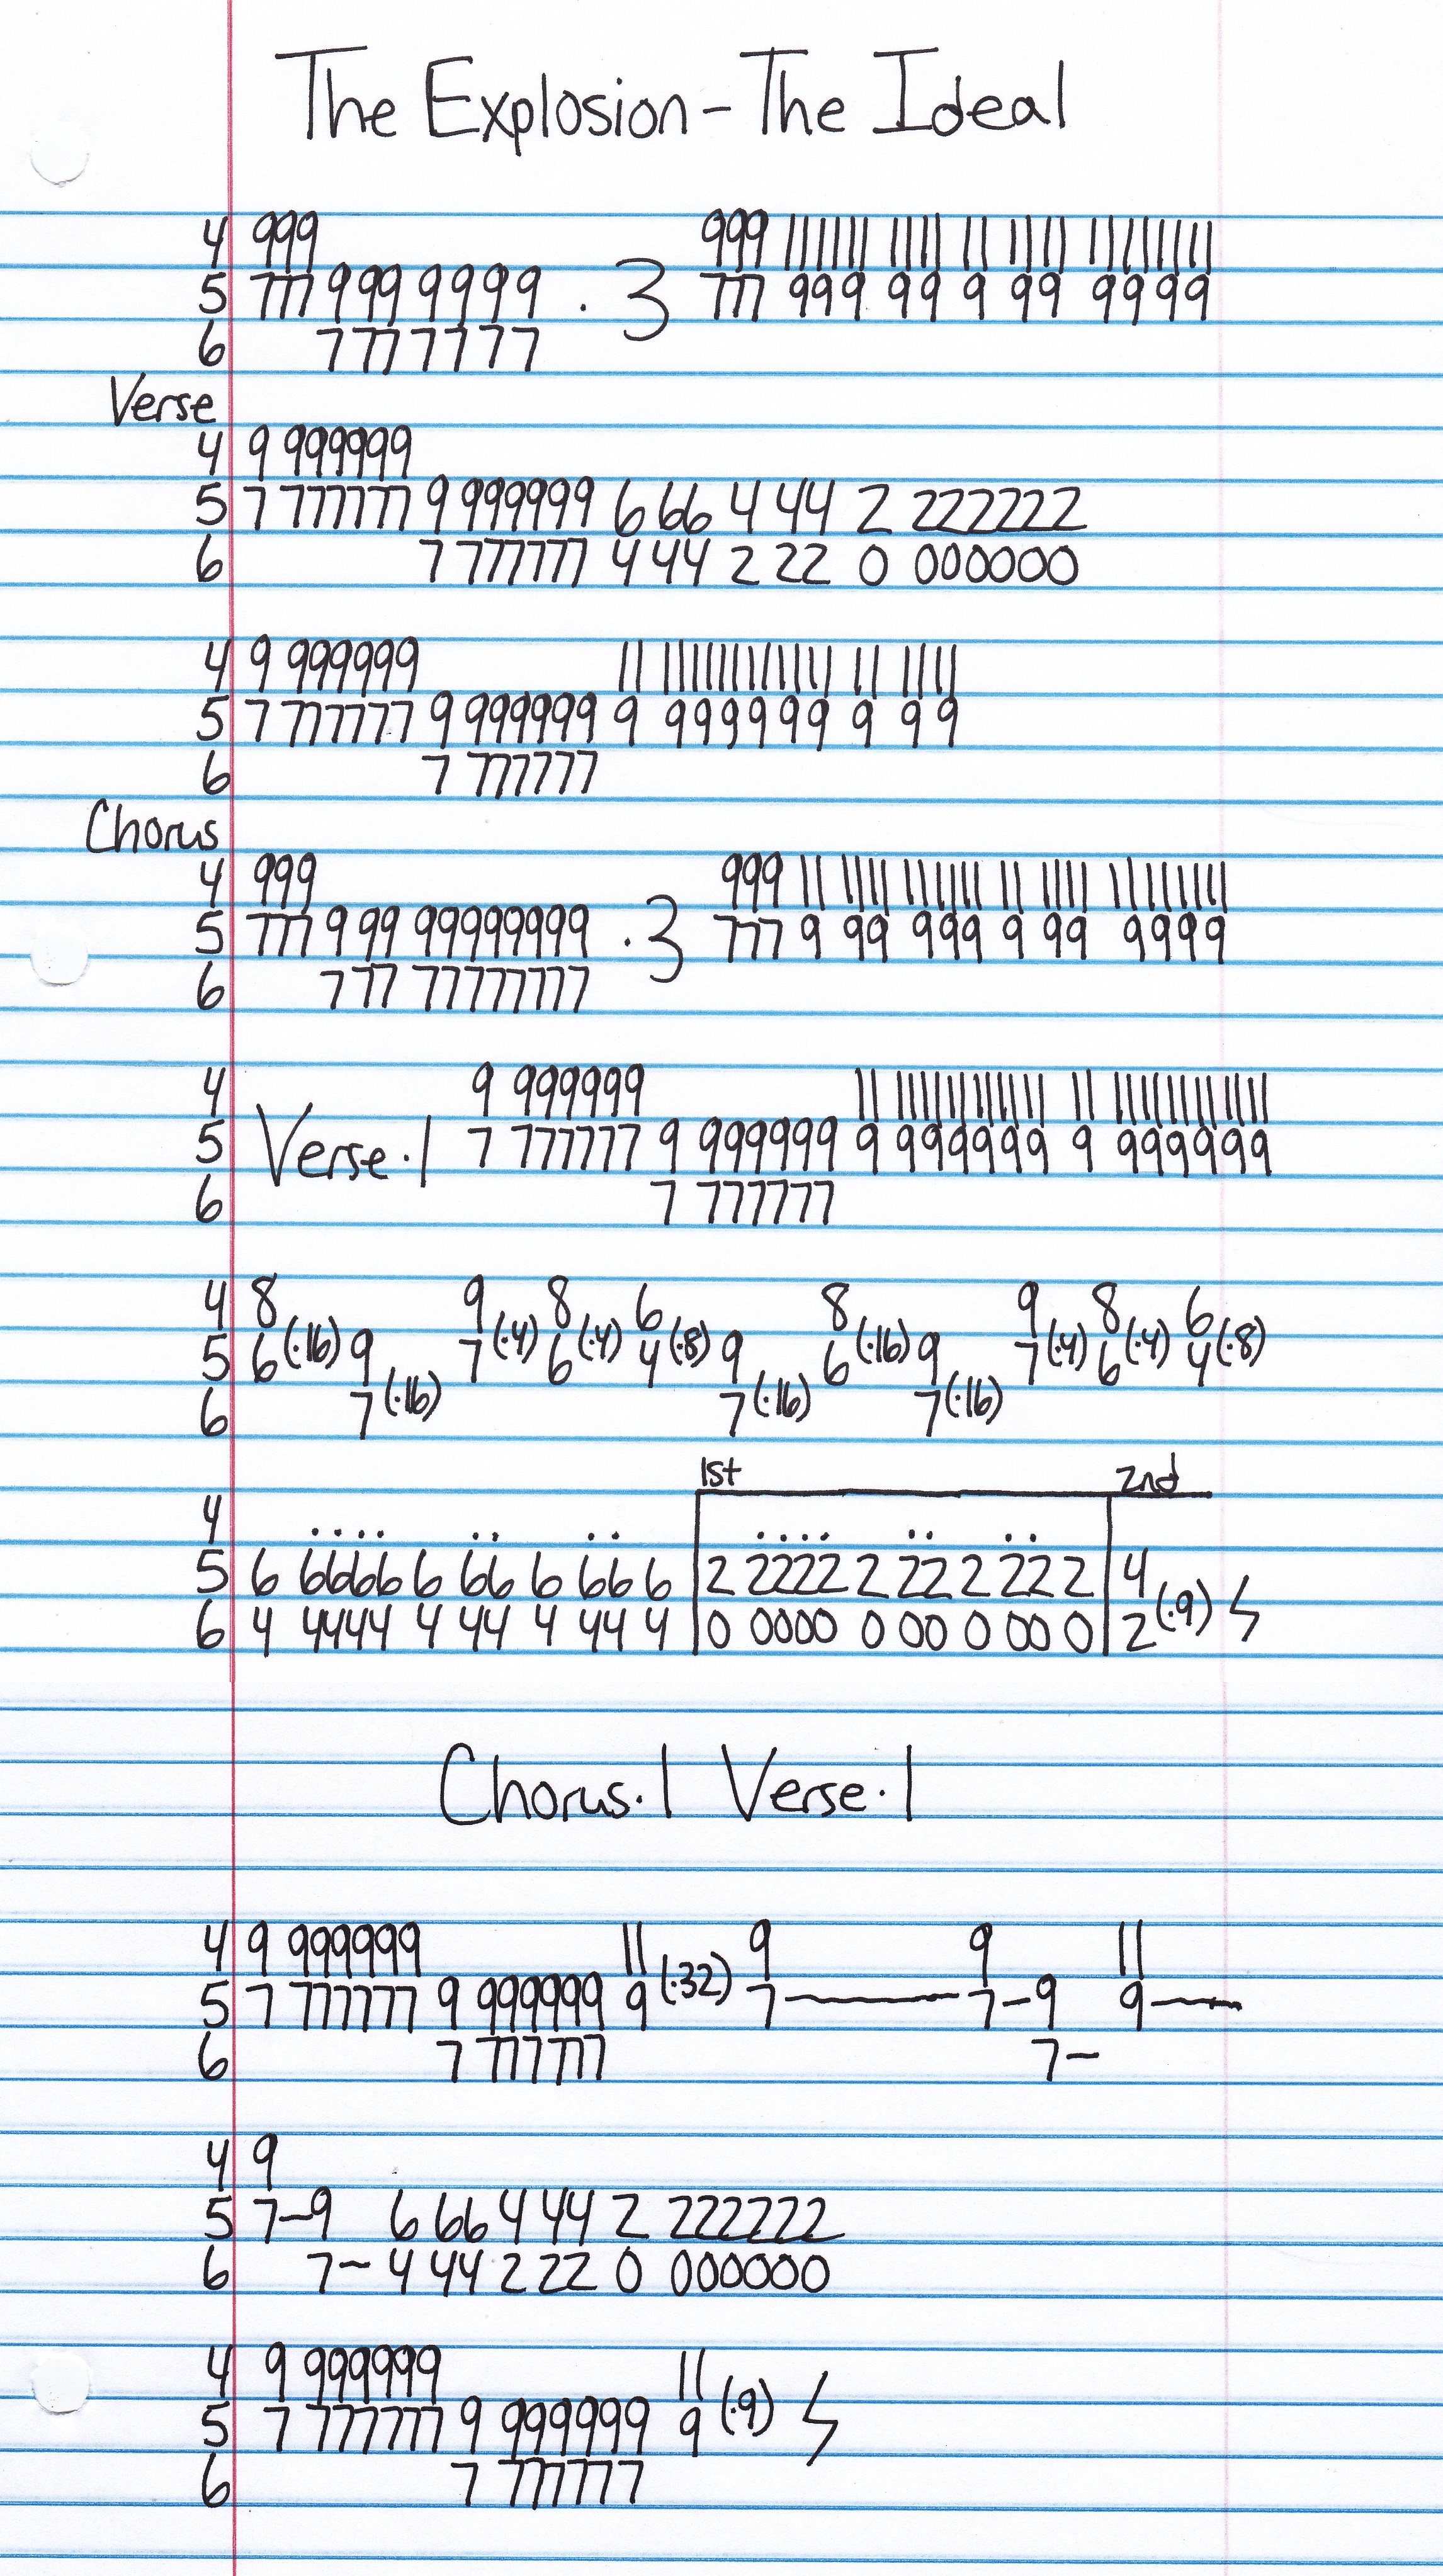 The Explosion - The Ideal
4 999 999 111111 1111 11 1111 11111111
5 777 999 9999 . 3 777 999 99 9 99 9999
6 777 7777
Verse
4 9 999999
5 7 777777 9 999999 6 66 4 44 2 222222
6 7 777777 4 44 2 22 0 000000
4 9 999999 11 111111111111 11 1111
5 7 777777 9 999999 9 999999 9 99
6 7 777777
Chorus
4 999 999 11 1111 111111 11 1111 11111111
5 777 9 99 99999999 .3 777 9 99 999 9 99 9999
6 7 77 77777777
4 9 999999 11 111111111111 11 111111111111
5 Verse.1 7 777777 9 999999 9 999999 9 999999
6 7 777777
4 8 9 8 6 8 9 8 6
5 6 (.16) 9 7 (.4) 6 (.4) 4 (.8) 9 6 (.16) 9 7 (.4) 6 (.4) 4 (.8)
6 7 (.16) 7 (.16) 7 (.16)
1st 2nd
4
5 6 6666 6 66 6 66 6 2 2222 2 22 2 22 2 4
6 4 4444 4 44 4 44 4 0 0000 0 00 0 00 0 2 (.9)
Chorus.1 Verse.1
4 9 999999 11 9 9 11
5 7 777777 9 999999 9 (.32) 7 — 7 – 9 9 —
6 7 777777 7 –
4 9
5 7 – 9 6 66 4 44 2 222222
6 7 – 4 44 2 22 0 000000
4 9 999999 11
5 7 777777 9 999999 9 (.9)
6 7 777777